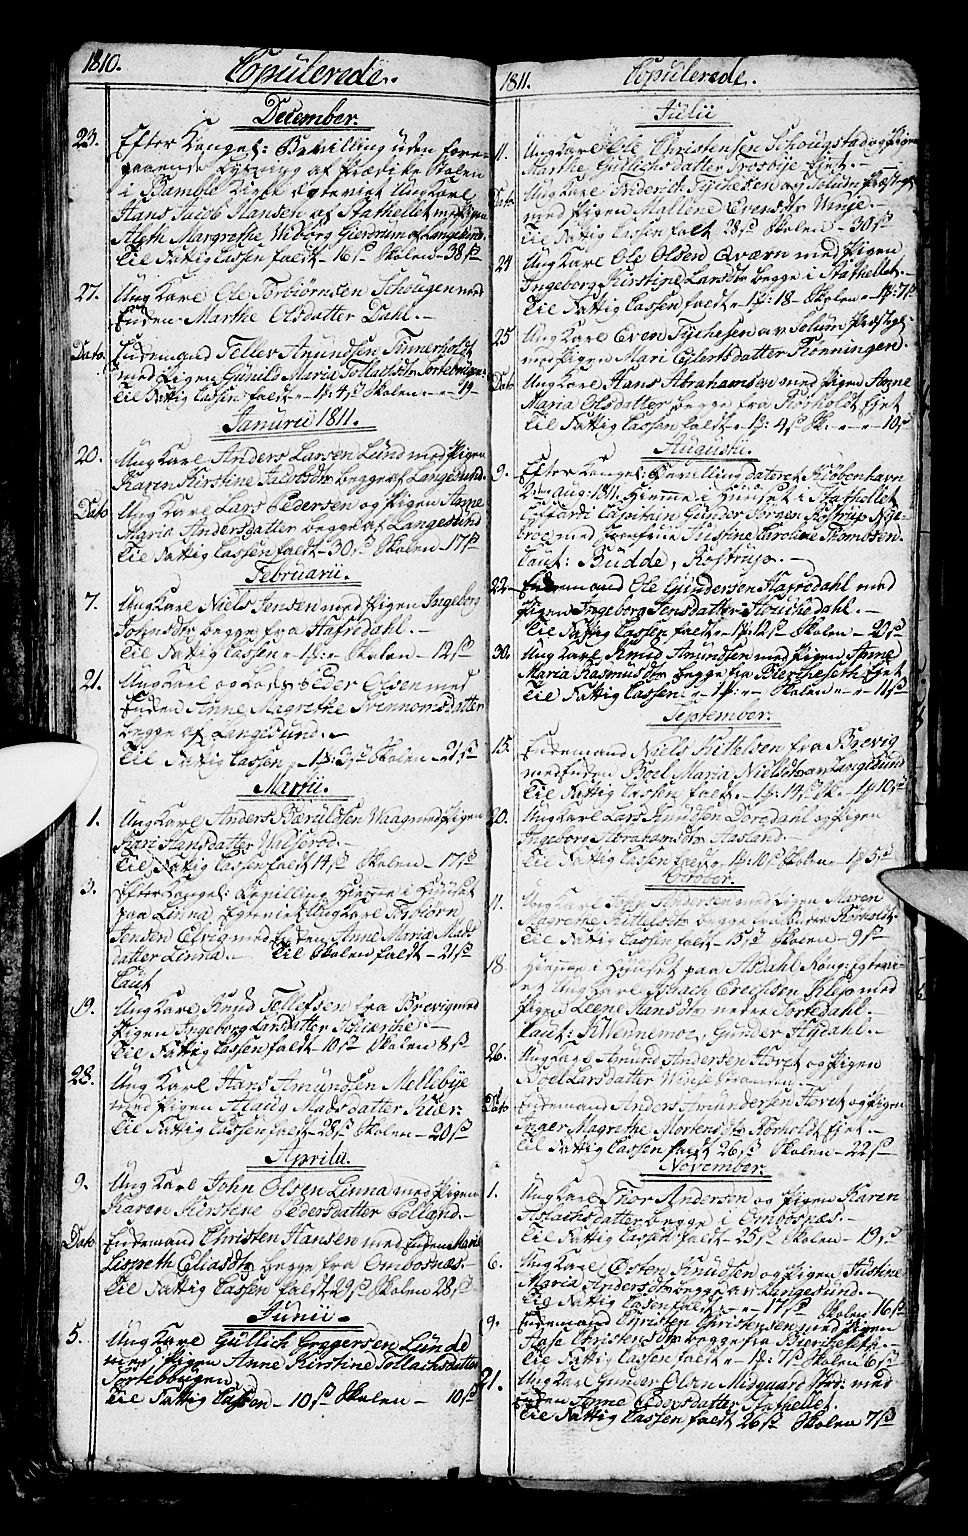 1810. Copulerede.
December.
23. Efter Kongel: Bevilling uden fore-
gaaende Lysning af Prædike Stolen
i Bamble Kirke Egteviet Ung Karl
Hans Jacob Hansen af Stathellet med Pigen
Aleth Margrethe Wiborg Gierrum af Langesund
Til Fattig Cassen faldt - 16 s Skolen - 38 s
27. Ung Karl Ole Torbiørnsen Schougen med
Enken Marthe Olsdatter Dahl. -
Dato Enkemand Teller Amundsen Tinnerholt
med Pigen Gunild Maria Tollachsdtr Tortebrigen:
Til Fattig Cassen faldt - 1 : 4 s Skolen - - 19 -
Janurii 1811.
20. Ung Karl Anders Larsen Lund med Pigen
Karen Kirstine Jacobsdtr begge af Langesund.
Dato Ung Karl Lars Pedersen og Pigen Anne
Maria Andersdatter begge af Langesund
Til Fattig Cassen faldt - 30 s Skolen 17 s
Februarii.
7. Ung Karl Niels Jensen med Pigen Ingeborg
Johnsdtr begge fra Hafredahl. -
Til Fattig Cassen - 1 : - Skolen - 12 s
21. Ung Karl og Peder Olsen med
Enken Anne Magrethe Svennomsdatter
begge af Langesund. -
Til Fattig Cassen - 1 : 3 s Skolen - 21 s
Martii.
1. Ung Karl Anders Bæruldsen Waag med Pigen
Kari Hansdatter Walserød. -
Til Fattig Cassen faldt 14 s Skolen - 17 s
3. Efter Kongel: Bevilling Hiemme i Huuset
paa Linna Egteviet Ung Karl Torbiørn
Jensen Elvig med Enken Anne Maria Mads
datter Linna. - Til Skolen faldt - 21 s
Caut
19. Ung Karl Knud Tollefsen fra Brevig med
Pigen Ingeborg Larsdatter -
Til Fattig Cassen faldt - 10 s Skolen 8 s
28. Ung Karl Hans Amundsen Mellebye
med Pigen Alaug Madsdatter Kiær:
Til Fattig Cassen faldt - 23 s Skolen - 20 s
Aprilii.
9. Ung Karl John Olsen Linna med Pigen
Karen Kirstine Pedersdatter -
Dato Enkemand Christen Hansen med Enken Marie
Lisbeth Eliasdtr begge fra Ombosnæs. -
Til Fattig Cassen faldt 29 s Skolen 28 s
Junii.
5. Ung Karl Gullich Greggersen Lunde
med Pigen Anne Kirstine Tollachsdatter
Tortebrigen
Til Fattig Cassen - 10 s Skolen - 10 s
1811. Copulerede.
Julii
11. Ung Karl Ole Christensen Schougstad og Pigen
Marthe Gullichsdatter Trosbye Eiet. -
Dato Ung Karl Diderich Tychesen av Solum Præstegl
med Pigen Mallene Evensdtr Vinje. -
Til Fattig Cassen faldt 28 s Skolen - 30 s
24 Ung Karl Ole Olsen Qværn med Pigen
Ingeborg Kirstine Larsdtr begge i Stathellet. -
Til Fattig Cassen faldt - 1 : 18 - Skolen - 1 : 7 s
25 Ung Karl Even Tychesen av Solum Præstegl
med Pigen Mari Ejlertsdatter Rønningen
Dato Ung Karl Hans Abrahamsen med Pigen Anne
Maria Olsdatter begge fra Rørholdt Eiet
Til Fattig Cassen faldt - 1 : 4 s Sk. - - - 10 s
Augustii.
9. Efter Kongel: Bevilling dateret Kiøbenhavn
2den Aug: 1811. Hiemme i Huuset i Stathellet
Capitain Gunder Jørgen Rostrup Nye-
broe med Justine Caroline Thomsen.
Caut: Budde, Rostrup. -
22. Enkemand Ole Gundersen Hafredahl med
Pigen Ingeborg Jensdatter Houchedahl. -
Til Fattig Cassen faldt - 1 : 12 s Skolen - 20 s
30. Ung Karl Knud Amundsen med Pigen Anne
Maria Rasmusdtr begge fra Bierkeseth Eiet
Til Fattig Cassen - - 1 : - - Skolen - - 11 s
September.
15. Enkemand Niels Kittelsen fra Brevig
med Enken Boel Maria Nielsdtr av Langesund
Til Fattig Cassen faldt. - 1 : 14 s Sk. - 1 : 10 s
20. Ung Karl Lars Knudsen Dordahl og Pigen
Ingeborg Abrahamsdtr Aasland.
Til Fattig Cassen faldt - 1 : 10 s Skolen - 1 : 5 s
October.
11. Ung Karl John Andersen med Pigen Maren
Magrethe Kittelsdtr begge Rørholt:
Til Fattig Cassen faldt - 15 s Skolen - 9 s
18 Hiemme i Huuset paa Asdahl Kong: Egtevi-
et Ung Karl Isach Erechsen Klep med
Pigen Leene Hansdtr nedre Tortedahl. -
Caut: K Hennemoe, Gunder Høgdahl. -
26. Ung Karl Amund Andersen Hovet og Pigen
Noel Larsdatter Vinje
Dato Enkemand Anders Amundersen Hovet og Pigen
Inger Magrethe Mortensdtr Rørholdt Eiet. -
Til Fattig Cassen faldt 26 s Skolen - 22 s -
November.
1. Ung Karl Thor Andersen og Pigen Karen
Isachsdatter begge i Ombosnæs. -
Til Fattig Cassen faldt - 25 s Skolen - 19 s
6. Ung Karl Østen Knudsen og Pigen Justine
Maria Andersdtr begge av Langesund. -
Til Fattig Cassen faldt - - - 17 s Skolen. 16 s
9. Enkemand Christen Christensen med Pigen
Aase Christensdtr begge fra Bierkeseth. -
Til Fattig Cassen faldt - 1 : 7 s Skolen 6 s
21. Ung Karl Gunder Olsen Midgaard Eid: med
Enken Anne Pedersdatter Stathellet.
Til Fattig Cassen faldt 26 s Skolen 7 s